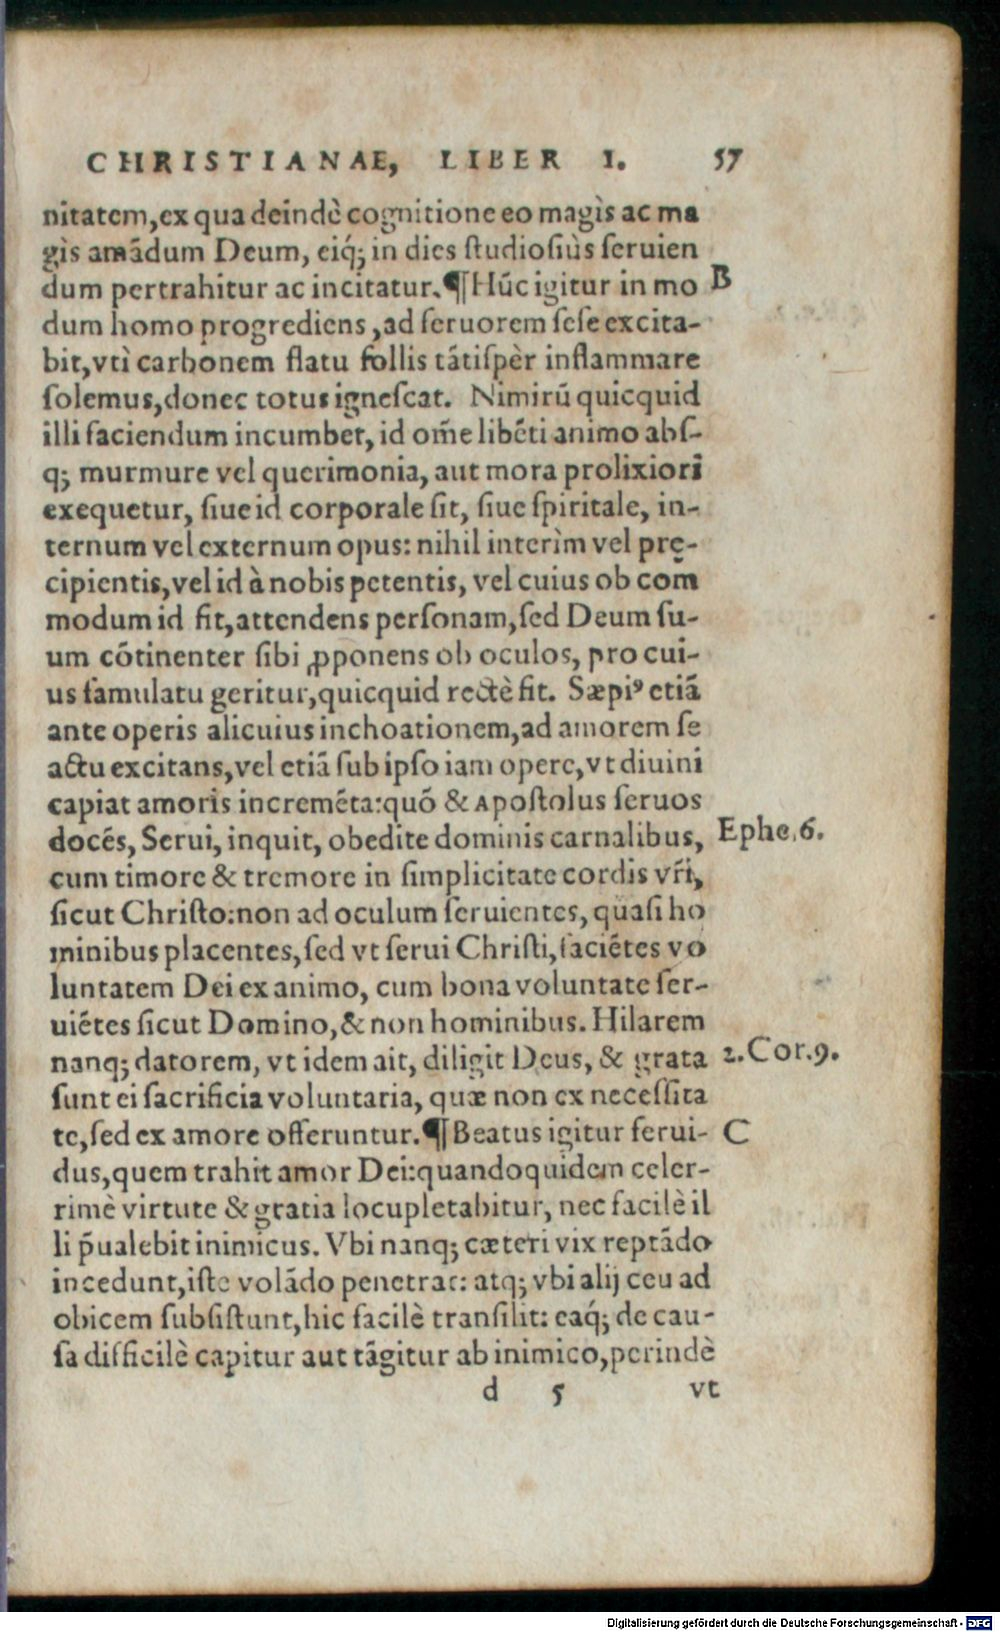 CHRISTIANAE, LIBER I. 57
nitatem, ex qua deindè cognitione eo magìs ac ma
gìs amādum Deum, eiq́; in dies ſtudioſiùs ſeruien
dum pertrahitur ac incitatur. ¶ Hūc igitur in mo B
dum homo progrediens, ad feruorem ſeſe excita-
bit, vtì carbonem flatu follis tātiſpèr inflammare
ſolemus, donec totus igneſcat. Nimirū quicquid
illi faciendum incumbet, id om̃e libēti animo abſ-
q; murmure vel querimonia, aut mora prolixiori
exequetur, ſiue id corporale ſit, ſiue ſpiritale, in-
ternum vel externum opus: nihil interìm vel prę-
cipientis, vel id à nobis petentis, vel cuius ob com
modum id fit, attendens perſonam, ſed Deum ſu-
um cōtinenter ſibi ꝓponens ob oculos, pro cui-
us famulatu geritur, quicquid rectè fit. Sæpiꝰ etiā
ante operis alicuius inchoationem, ad amorem ſe
actu excitans, vel etiā ſub ipſo iam opere, vt diuini
capiat amoris incremēta: quō & Apoſtolus ſeruos
docēs, Serui, inquit, obedite dominis carnalibus, Ephe. 6.
cum timore & tremore in ſimplicitate cordis vr̃i,
ſicut Chriſto: non ad oculum ſeruientes, quaſi ho
minibus placentes, ſed vt ſerui Chriſti, faciētes vo
luntatem Dei ex animo, cum bona voluntate ſer-
uiētes ſicut Domino, & non hominibus. Hilarem
nanq; datorem, vt idem ait, diligit Deus, & grata 2. Cor. 9.
ſunt ei ſacrificia voluntaria, quæ non ex neceſſita
te, ſed ex amore offeruntur. ¶ Beatus igitur ferui- C
dus, quem trahit amor Dei: quandoquidem celer-
rimè virtute & gratia locupletabitur, nec facilè il
li p̄ualebit inimicus. Vbi nanq; cæteri vix reptādo
incedunt, iſte volādo penetrat: atq; vbi alij ceu ad
obicem ſubſiſtunt, hic facilè tranſilit: eaq́; de cau-
ſa difficilè capitur aut tāgitur ab inimico, perindè
d 5 vt
Digitalisierung gefördert durch die Deutsche Forschungsgemeinschaft - DFG